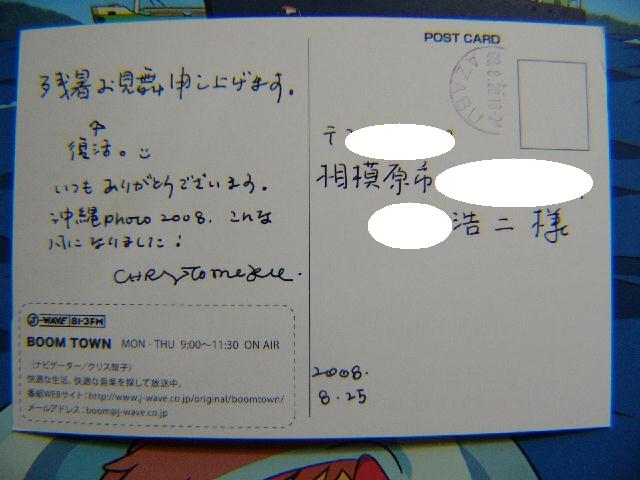 残暑お見舞い申し上げます。
↑
復活。
いつもありがとうございます。
沖縄photo 2008. こんな
風になりました!
POST CARD
AZABU
〒
相模原市
浩二様
2008.
8.25
J-WAVE 81.3FM
BOOM TOWN MON - THU 9:00〜11:30 ON AIR
(ナビゲーター/クリス智子)
快適な生活、快適な音楽を探して放送中。
番組WEBサイト:http://www.j-wave.co.jp/original/boomtown/
メールアドレス:boom@j-wave.co.jp